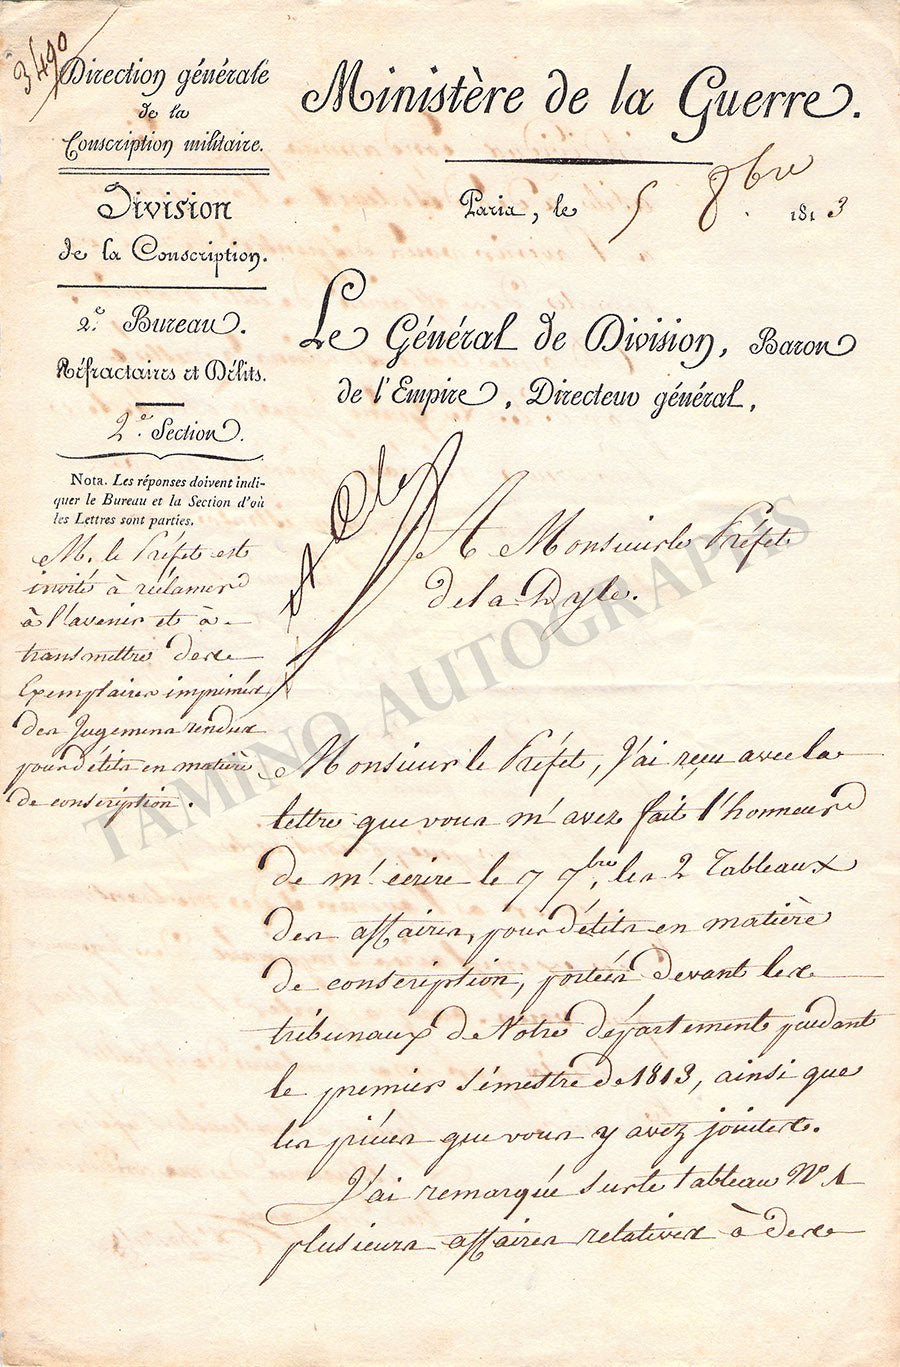 3490
Direction générale
de la
Conscription militaire.
Division
de la Conscription.
2e. Bureau.
Réfractaires et Délits.
2e. Section.
Nota. Les réponses doivent indi-
quer le Bureau et la Section d'où
les Lettres sont parties.
M. le Préfet est
invité à réclamer
à l'avenir et à
transmettre des
Exemplaires imprimés
des Jugemens rendus
pour délits en matière
de conscription.
Ministère de la Guerre.
Paris, le 5 8bre 1813
Le Général de Division, Baron
de l'Empire, Directeur général,
A Monsieur le Préfet
de la Dyle.
Monsieur le Préfet, J'ai reçu avec la
lettre que vous m'avez fait l'honneur
de m'écrire le 7 7bre, les 2 Tableaux
des affaires, pour délits en matière
de conscription, portées devant les
tribunaux de Votre département pendant
le premier Sémestre de 1813, ainsi que
les pièces que vous y avez jointes.
J'ai remarqué sur le tableau No 1
plusieurs affaires relatives à des
TAMINO AUTOGRAPHS